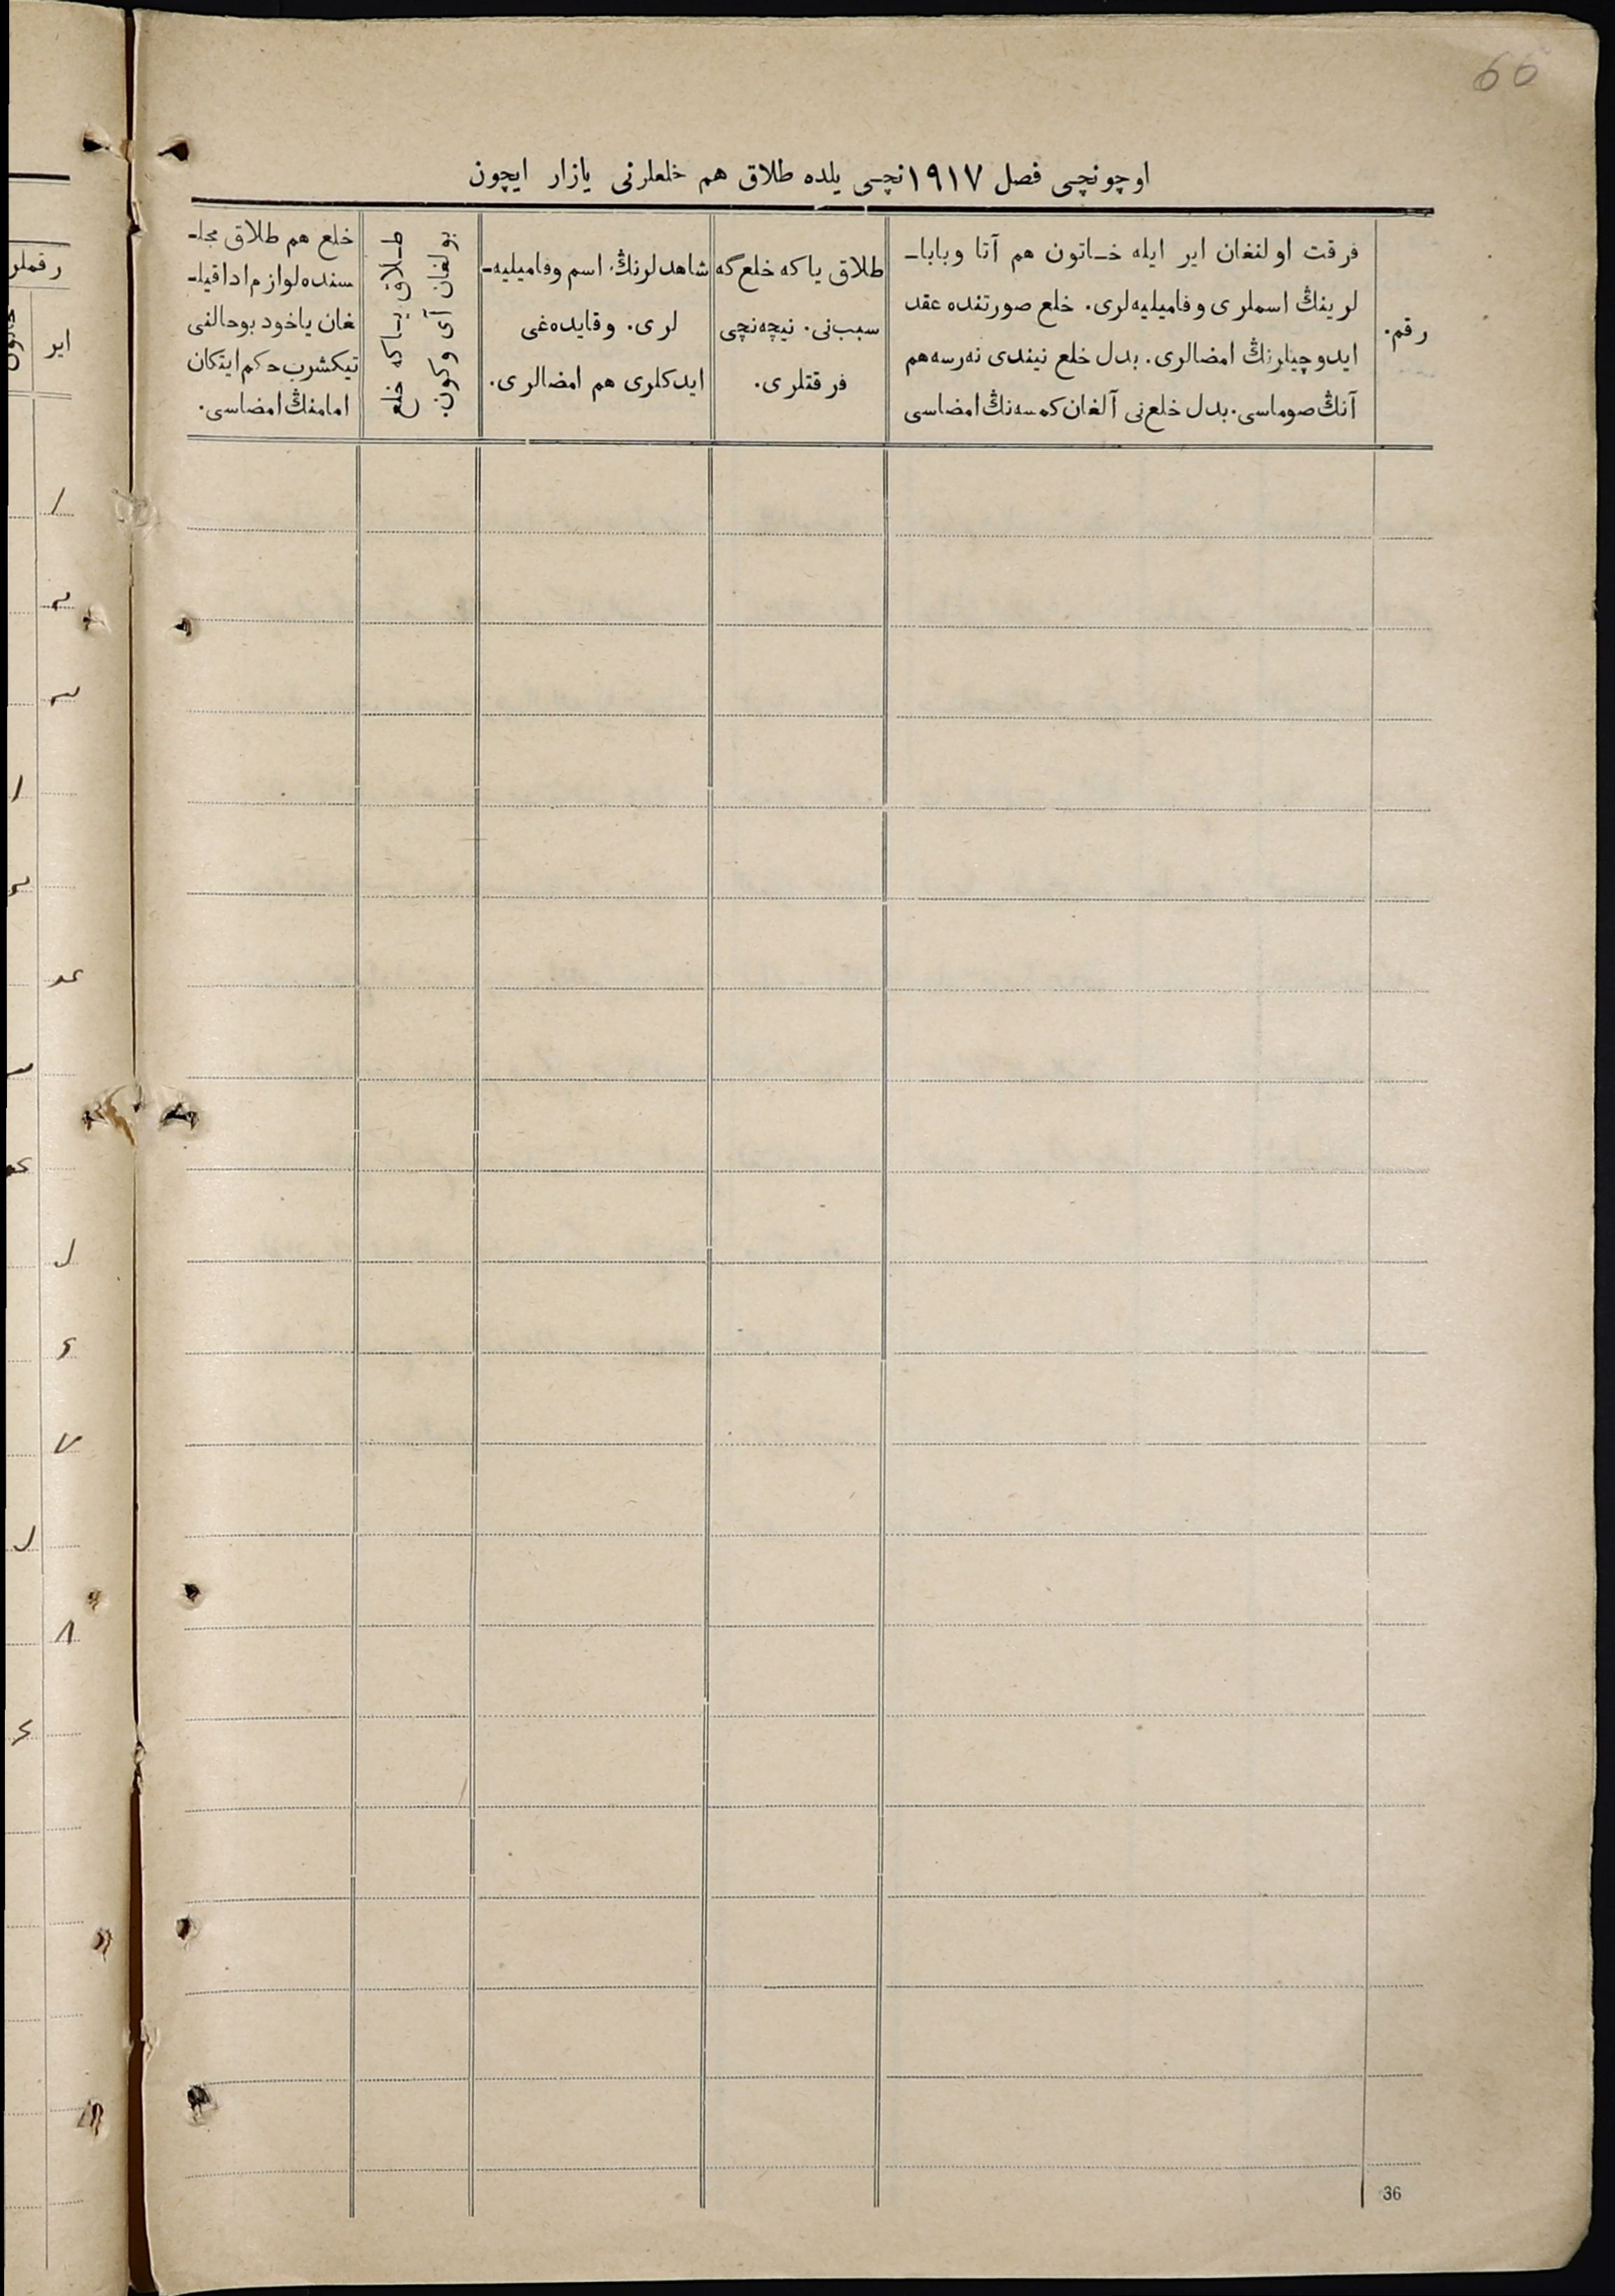 66
اوچونچی فصل ١٩١٧نچی یلده طلاق هم خلعلرنی یازار ایچون
رقم.
فرقت اولنغان ایر ایله خـاتون هم آتا وباباـ
لرینڭ اسملری وفامیلیه‌لری. خلع صورتنده عقد
ایدوچیلرنڭ امضالری. بدل خلع نیندی نه‌رسه‌هم
آنڭ صوماسی. بدل خلع‌نی آلغان کمسه‌نڭ امضاسی
طلاق یاکه خلع‌گه
سبب‌نی. نیچه‌نچی
فرقتلری.
شاهدلرنڭ اسم وفامیلیه‌ـ
لری. وقایده‌غی
ایدکلری هم امضالری.
طـلاق یـاکه خلع
بولغان آی وکون.
خلع هم طلاق مجلـ
سنده‌لوازم‌اداقیلـ
غان یاخود بوحالنی
تیکشرب حکم ایتکان
امامنڭ امضاسی.
رقملر
ایر
خاتون
١
٢
٣
١
٢
٧
٨
36